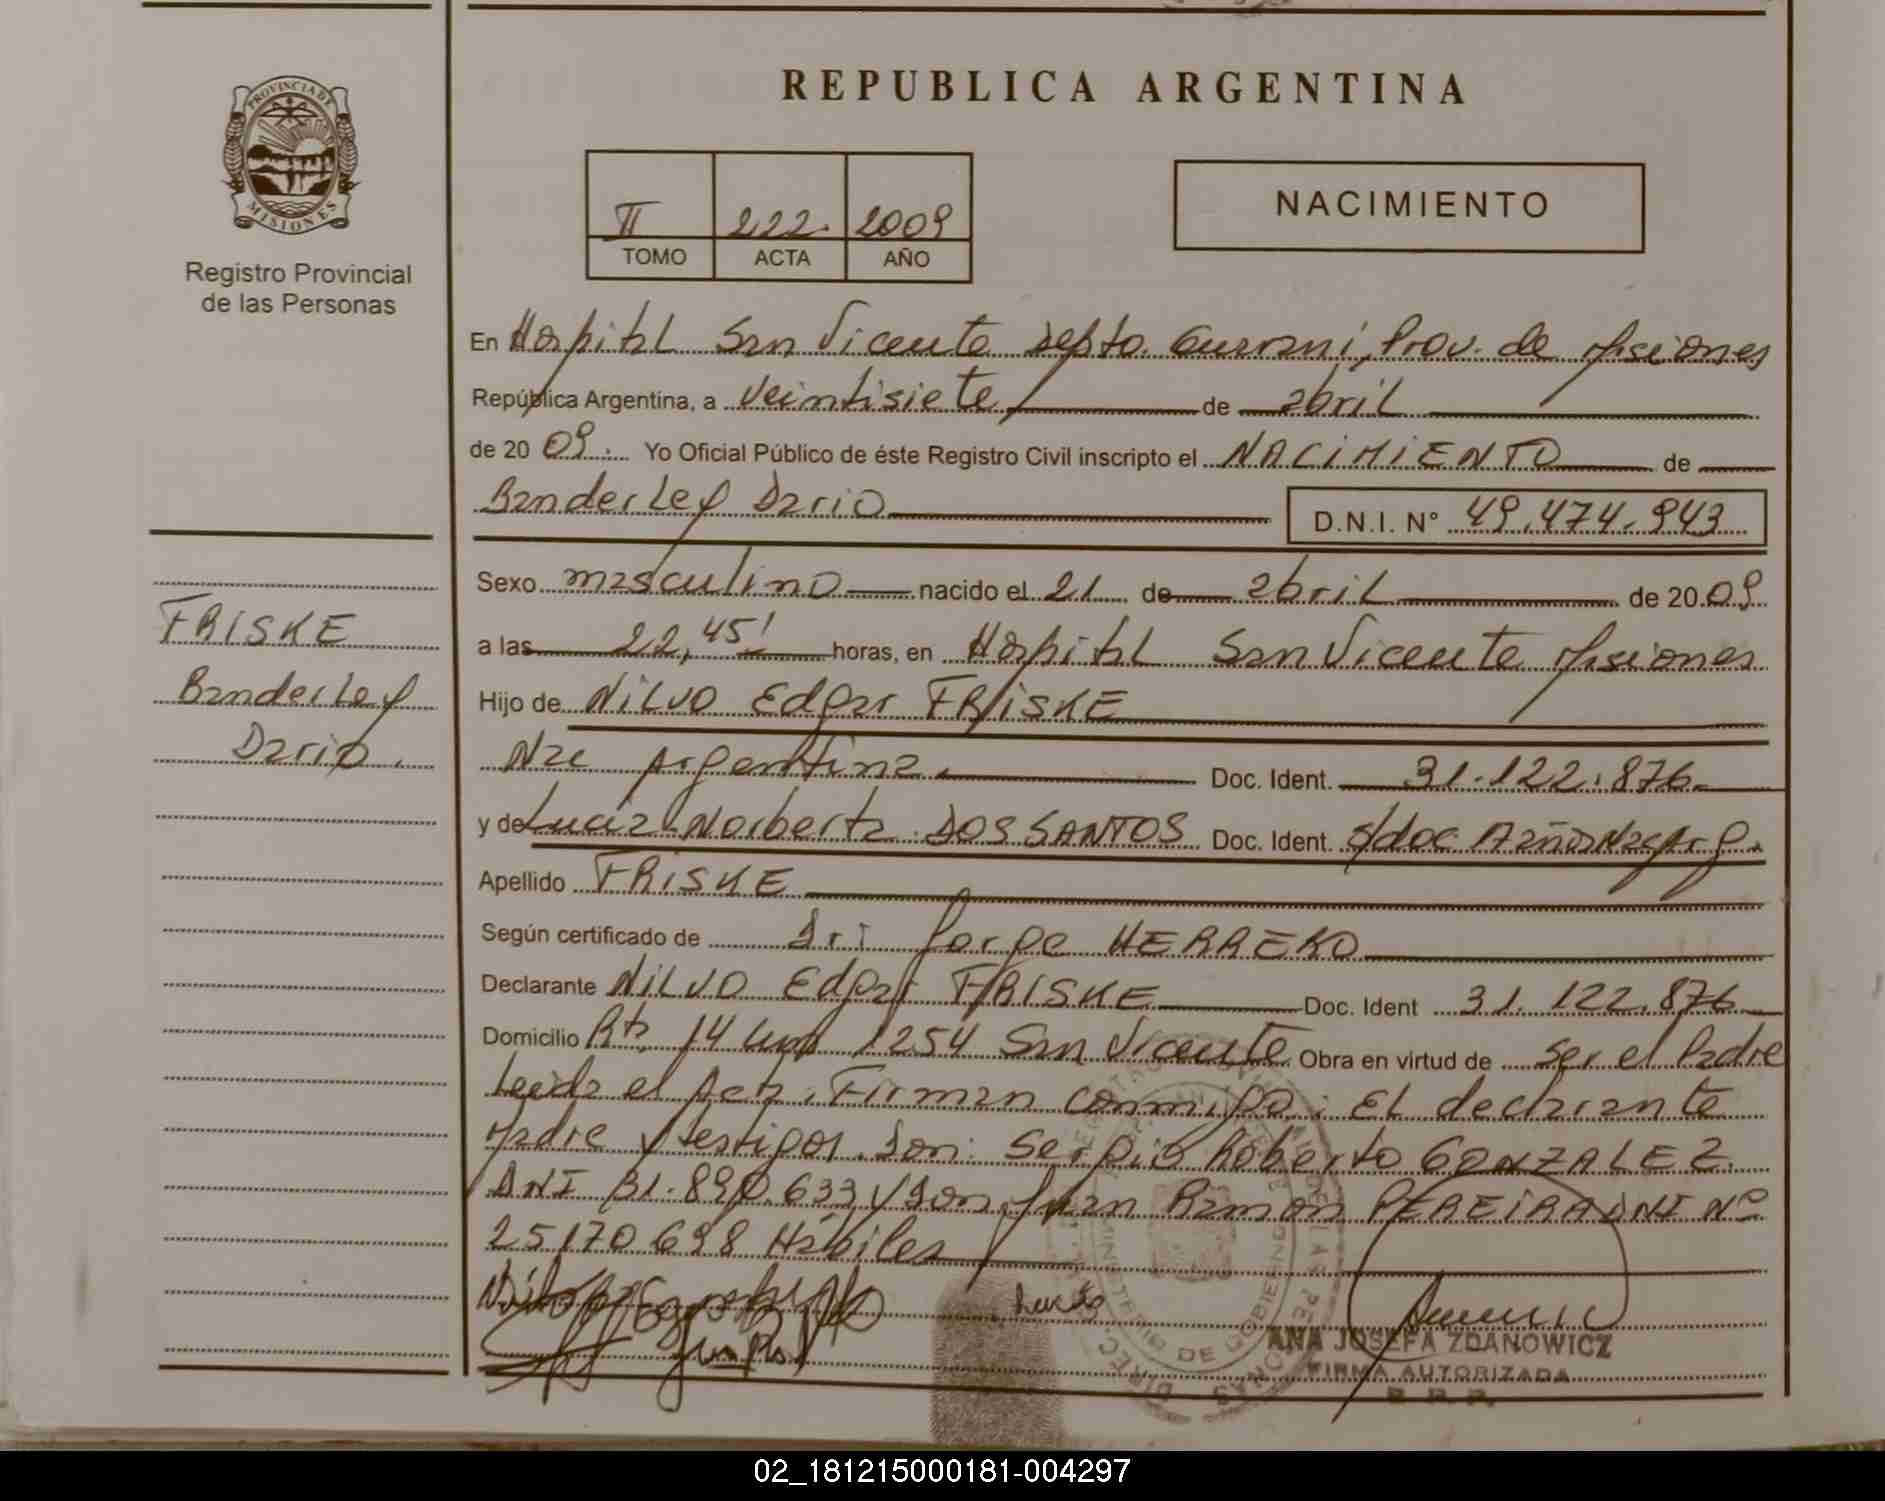 PROVINCIA DE
MISIONES
Registro Provincial
de las Personas
FRISKE
Banderley
Dario.
REPUBLICA ARGENTINA
II 222. 2009
TOMO ACTA AÑO
NACIMIENTO
En Hospital San Vicente Depto. Guarani, Prov. de Misiones
República Argentina, a veintisiete de abril
de 2009. Yo Oficial Público de éste Registro Civil inscripto el NACIMIENTO de
Banderley Dario D.N.I. N° 49.474.943
Sexo masculino nacido el 21 de abril de 2009
a las 22,45' horas, en Hospital San Vicente Misiones
Hijo de Nilvo Edgar FRISKE
Nac Argentina. Doc. Ident. 31.122.876.
y de Lucia Norberta DOS SANTOS Doc. Ident. s/doc Nac Arg.
Apellido FRISKE
Según certificado de Dr: Jorge HERRERO
Declarante Nilvo Edgar FRISKE Doc. Ident 31.122.876
Domicilio Rta 14 1254 San Vicente Obra en virtud de ser el Padre
Leida el Acta. Firman conmigo: El declarante
Madre y testigos. Don: Sergio Roberto GONZALEZ
DNI 31.890.633 y Don Juan Ramon PEREIRA DNI N°
25170698 Hábiles
Lucia
ANA JOSEFA ZDANOWICZ
FIRMA AUTORIZADA
R. P. P.
MINISTERIO DE GOBIERNO
02_181215000181-004297